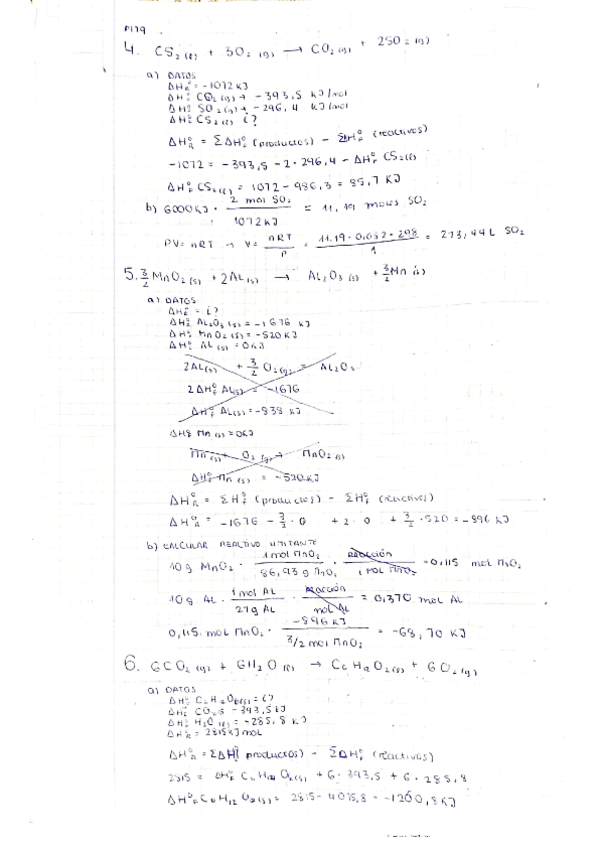 P179
4. CS₂(ℓ) + 3O₂(g) → CO₂(g) + 2SO₂(g)
a) DATOS
ΔH°R = -1072 KJ
ΔH°f CO₂(g) = -393,5 KJ/mol
ΔH°f SO₂(g) = -296,4 KJ/mol
ΔH°f CS₂(ℓ) ¿?
ΔH°R = ΣΔH°f (productos) - ΣΔH°f (reactivos)
-1072 = -393,5 - 2·296,4 - ΔH°f CS₂(ℓ)
ΔH°f CS₂(ℓ) = 1072 - 986,3 = 85,7 KJ
b) 6000 KJ · 2 mol SO₂ / 1072 KJ = 11,19 moles SO₂
PV = nRT → V = nRT / P = 11.19 · 0,082 · 298 / 1 = 273,44 L SO₂
5. 3/2 MnO₂(s) + 2Al(s) → Al₂O₃(s) + 3/2 Mn(s)
a) DATOS
ΔH°R = ¿?
ΔH°f Al₂O₃(s) = -1676 KJ
ΔH°f MnO₂(s) = -520 KJ
ΔH°f Al(s) = 0 KJ
2Al(s) + 3/2 O₂(g) = Al₂O₃
2ΔH°f Al(s) = -1676
ΔH°f Al(s) = -838 KJ
ΔH°f Mn(s) = 0 KJ
Mn(s) + O₂(g) → MnO₂(s)
ΔH°f Mn(s) = -520 KJ
ΔH°R = ΣH°f (productos) - ΣH°f (reactivos)
ΔH°R = -1676 - 3/2 · 0 + 2 · 0 + 3/2 · 520 = -896 KJ
b) CALCULAR REACTIVO LIMITANTE
10 g MnO₂ · 1 mol MnO₂ / 86,93 g MnO₂ · reacción / 1 mol MnO₂ = 0,115 mol MnO₂
10 g Al · 1 mol Al / 27 g Al · reacción / mol Al = 0,370 mol Al
0,115 mol MnO₂ · -896 KJ / 3/2 mol MnO₂ = -68,70 KJ
6. 6CO₂(g) + 6H₂O(ℓ) → C₆H₁₂O₆(s) + 6O₂(g)
a) DATOS
ΔH°f C₆H₁₂O₆(s) = ¿?
ΔH°f CO₂ = -393,5 KJ
ΔH°f H₂O(ℓ) = -285,8 KJ
ΔH°R = 2815 KJ mol
ΔH°R = ΣΔH°f productos) - ΣΔH°f (reactivos)
2815 = ΔH°f C₆H₁₂O₆(s) + 6·393,5 + 6·285,8
ΔH°f C₆H₁₂O₆(s) = 2815 - 4075,8 = -1260,8 KJ